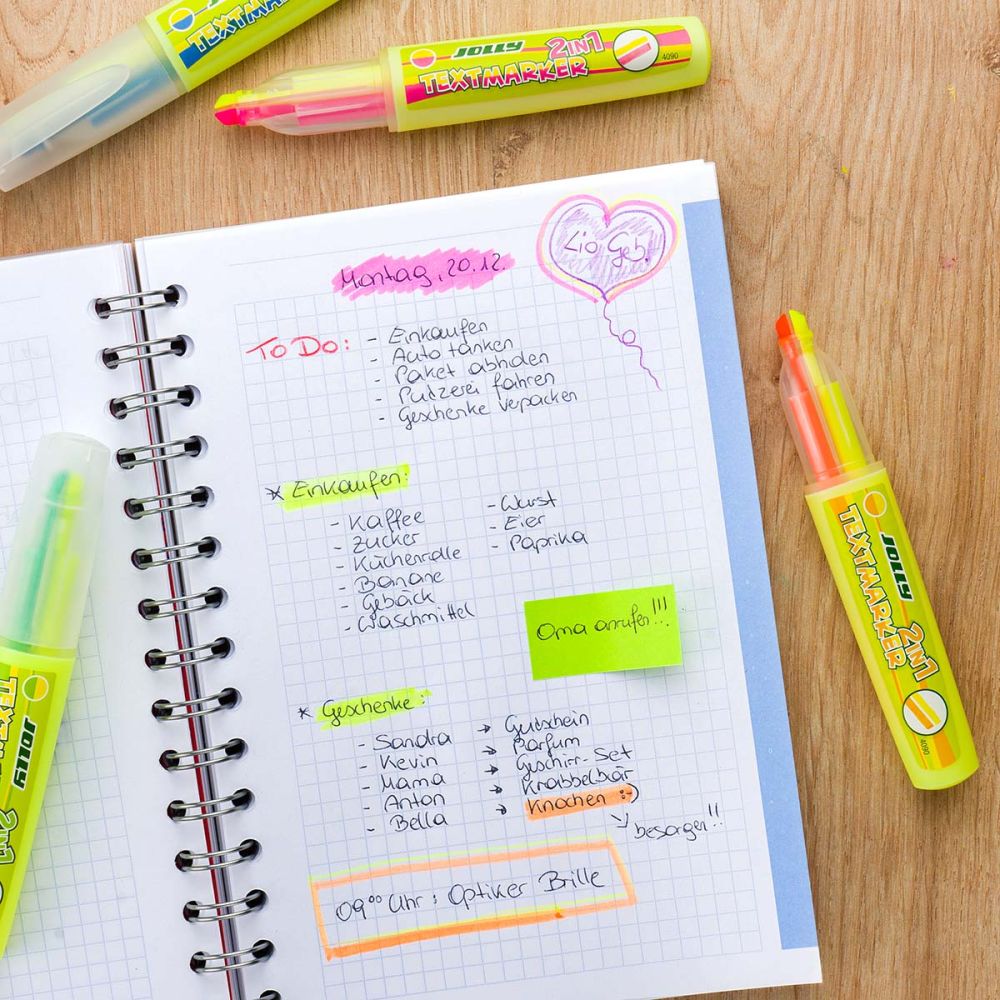 TEXTMARKER
JOLLY 2IN1
TEXTMARKER
4090
Montag, 20.12.
Lio Geb.
To Do:
- Einkaufen
- Auto tanken
- Paket abholen
- Putzerei fahren
- Geschenke verpacken
* Einkaufen:
- Kaffee
- Zucker
- Küchenrolle
- Banane
- Gebäck
- Waschmittel
- Wurst
- Eier
- Paprika
Oma anrufen!!!
* Geschenke:
- Sandra → Gutschein
- Kevin → Parfum
- Mama → Geschirr-Set
- Anton → Knabbelbär
- Bella → Knochen :)
→ besorgen!!
09⁰⁰ Uhr: Optiker Brille
JOLLY
TEXTMARKER
2IN1
4090
JOLLY
2IN1